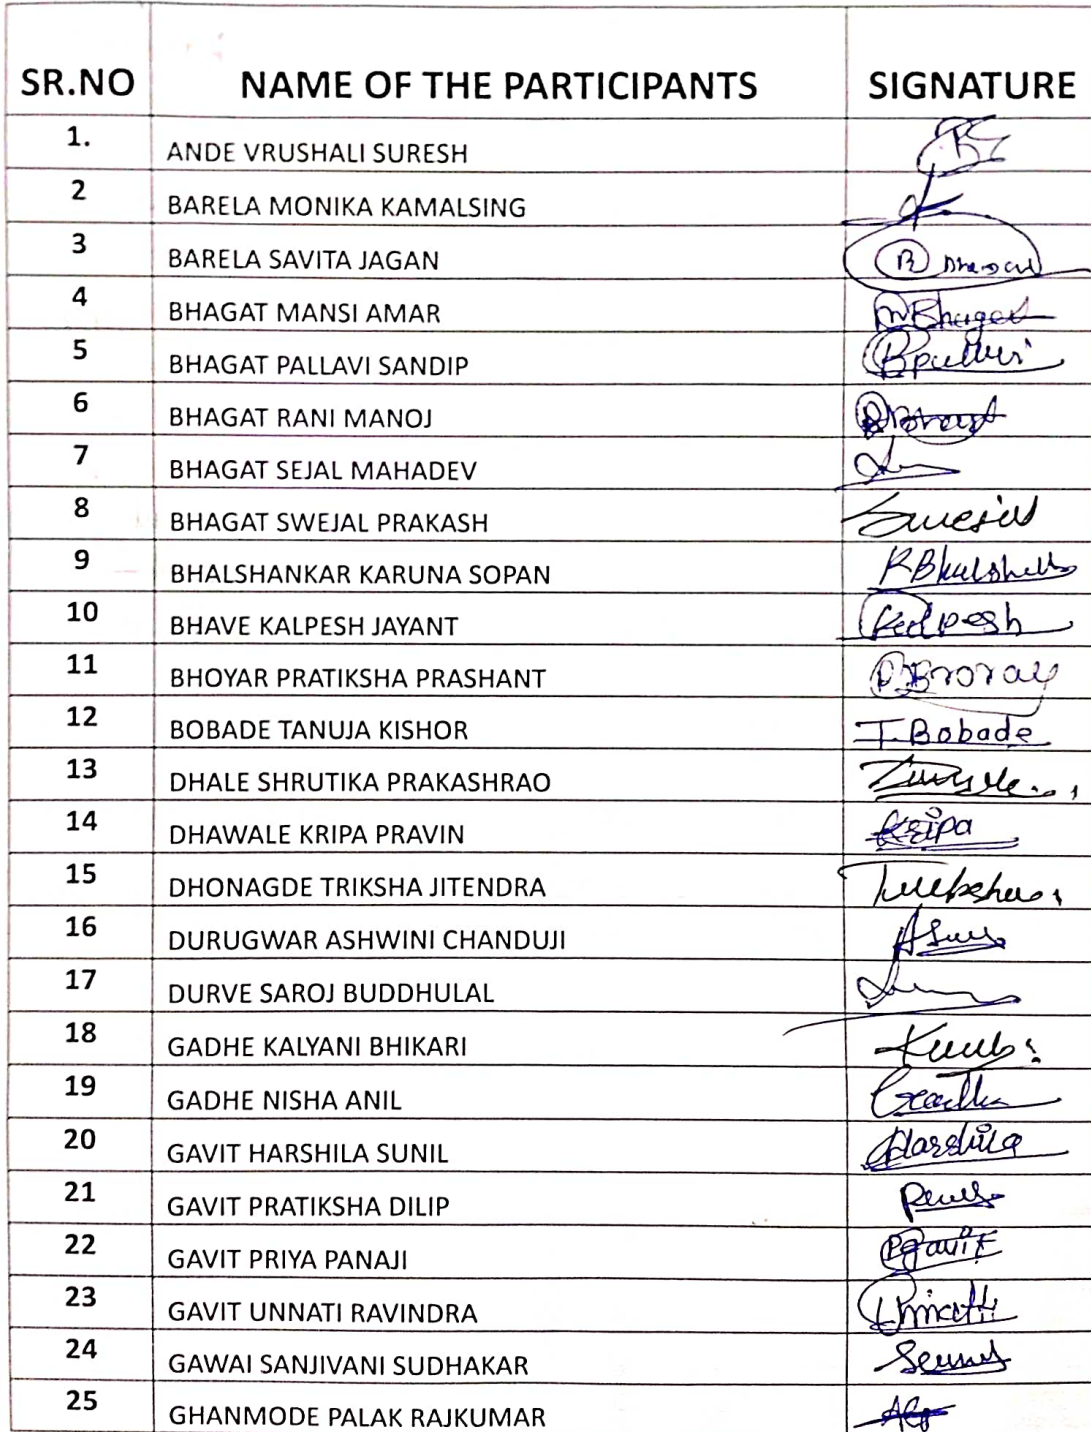 SR.NO NAME OF THE PARTICIPANTS SIGNATURE
1. ANDE VRUSHALI SURESH
2 BARELA MONIKA KAMALSING
3 BARELA SAVITA JAGAN
4 BHAGAT MANSI AMAR Bhagat
5 BHAGAT PALLAVI SANDIP
6 BHAGAT RANI MANOJ
7 BHAGAT SEJAL MAHADEV
8 BHAGAT SWEJAL PRAKASH
9 BHALSHANKAR KARUNA SOPAN
10 BHAVE KALPESH JAYANT Kalpesh
11 BHOYAR PRATIKSHA PRASHANT
12 BOBADE TANUJA KISHOR T. Bobade
13 DHALE SHRUTIKA PRAKASHRAO
14 DHAWALE KRIPA PRAVIN Kripa
15 DHONAGDE TRIKSHA JITENDRA
16 DURUGWAR ASHWINI CHANDUJI
17 DURVE SAROJ BUDDHULAL
18 GADHE KALYANI BHIKARI
19 GADHE NISHA ANIL
20 GAVIT HARSHILA SUNIL Harshila
21 GAVIT PRATIKSHA DILIP
22 GAVIT PRIYA PANAJI PGavit
23 GAVIT UNNATI RAVINDRA
24 GAWAI SANJIVANI SUDHAKAR
25 GHANMODE PALAK RAJKUMAR